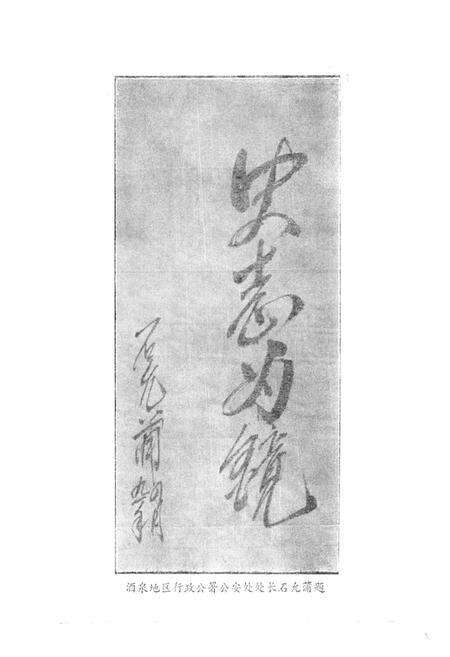 史志为镜
石允蒲
酒泉地区行政公署公安处处长石允蒲题